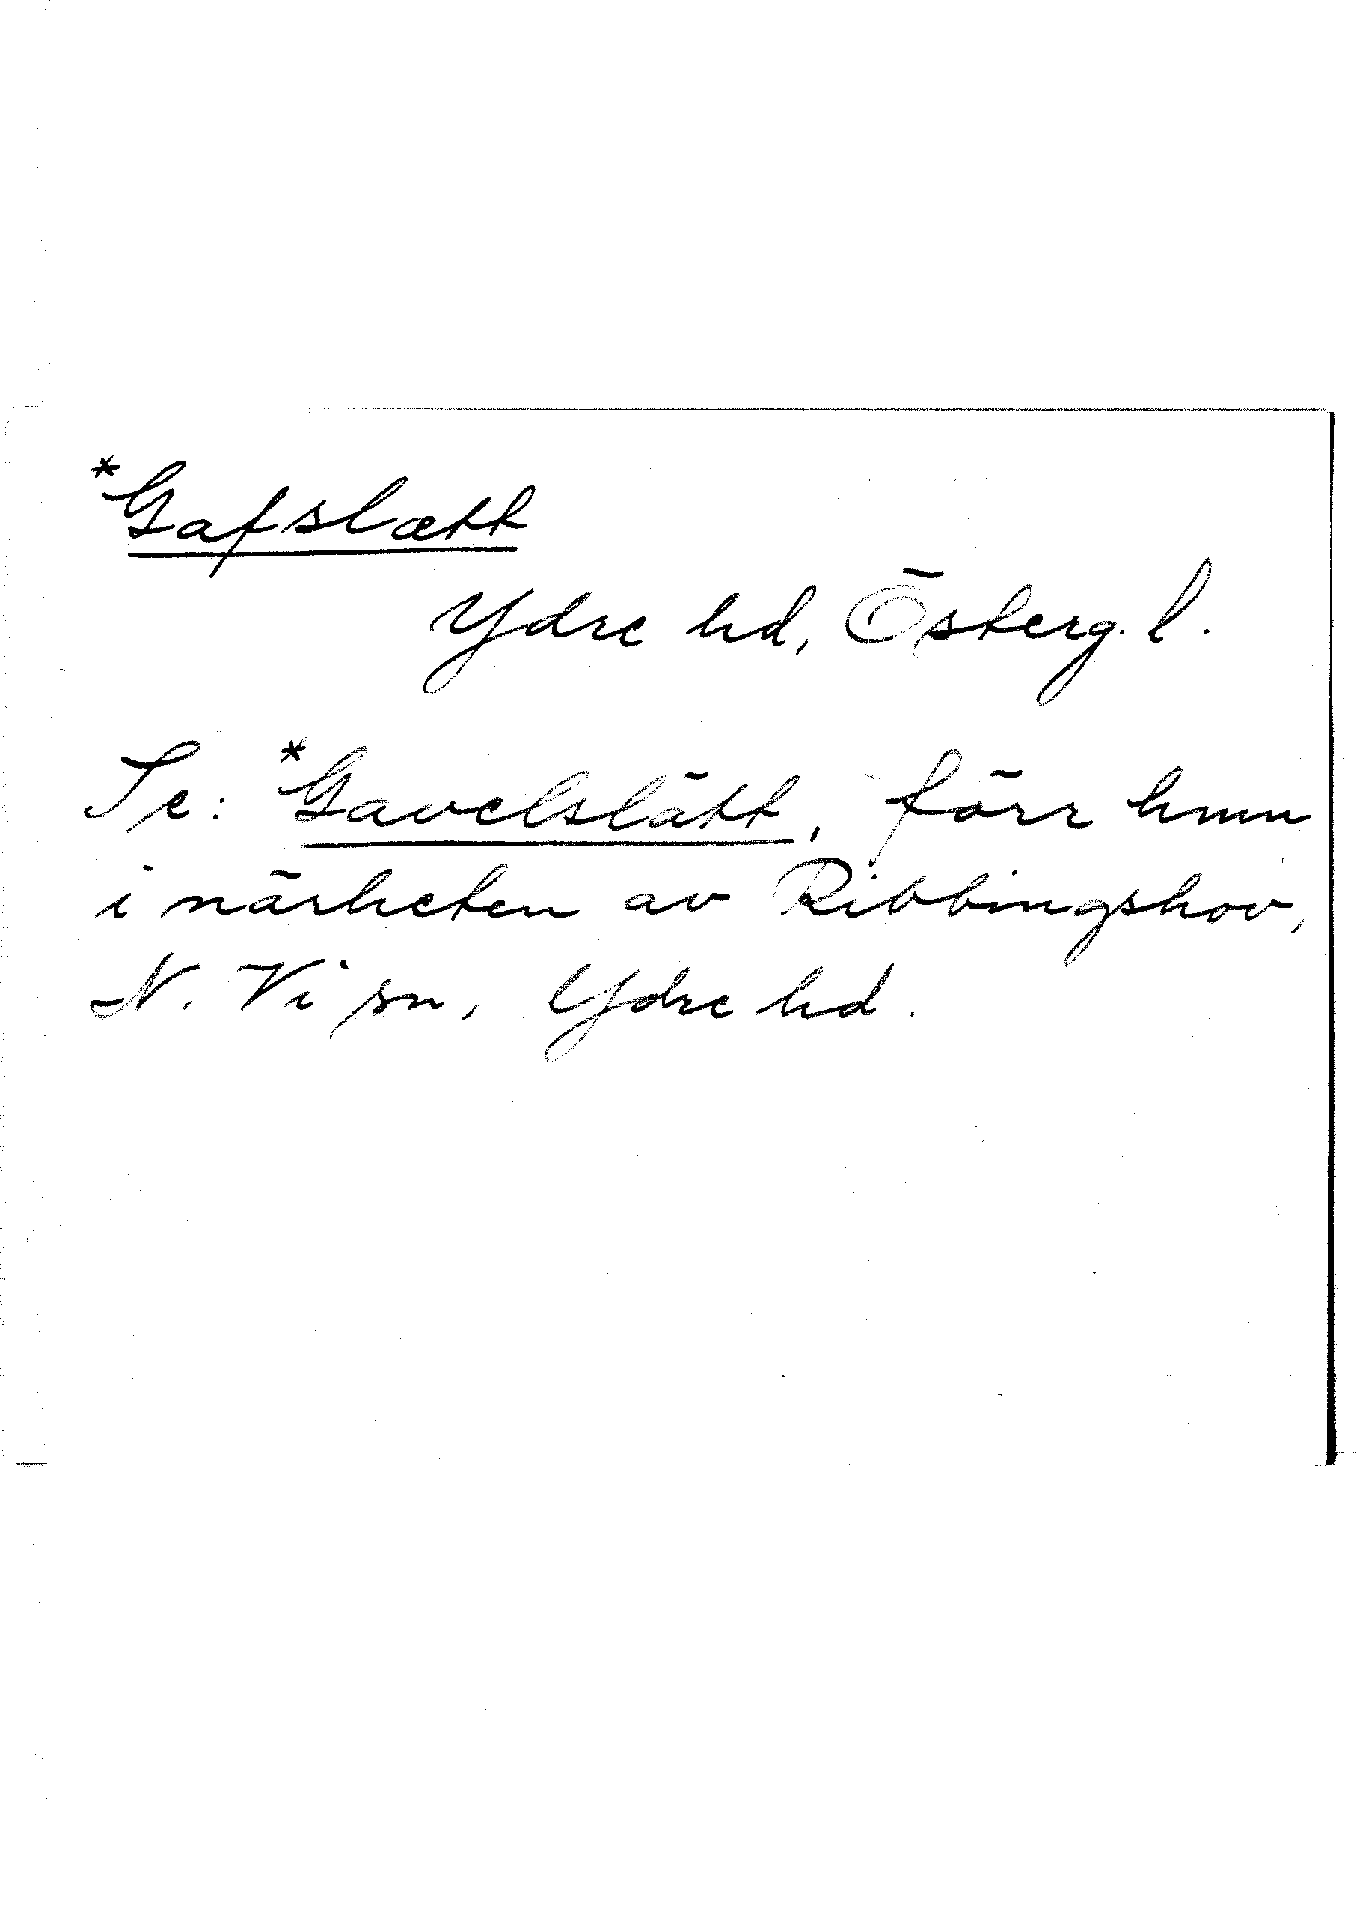 *Gafslætt
Ydre hd, Österg. l.
Se: *Gavelslätt, förr hmn
i närheten av Ribbingshov,
N. Vi sn, Ydre hd.